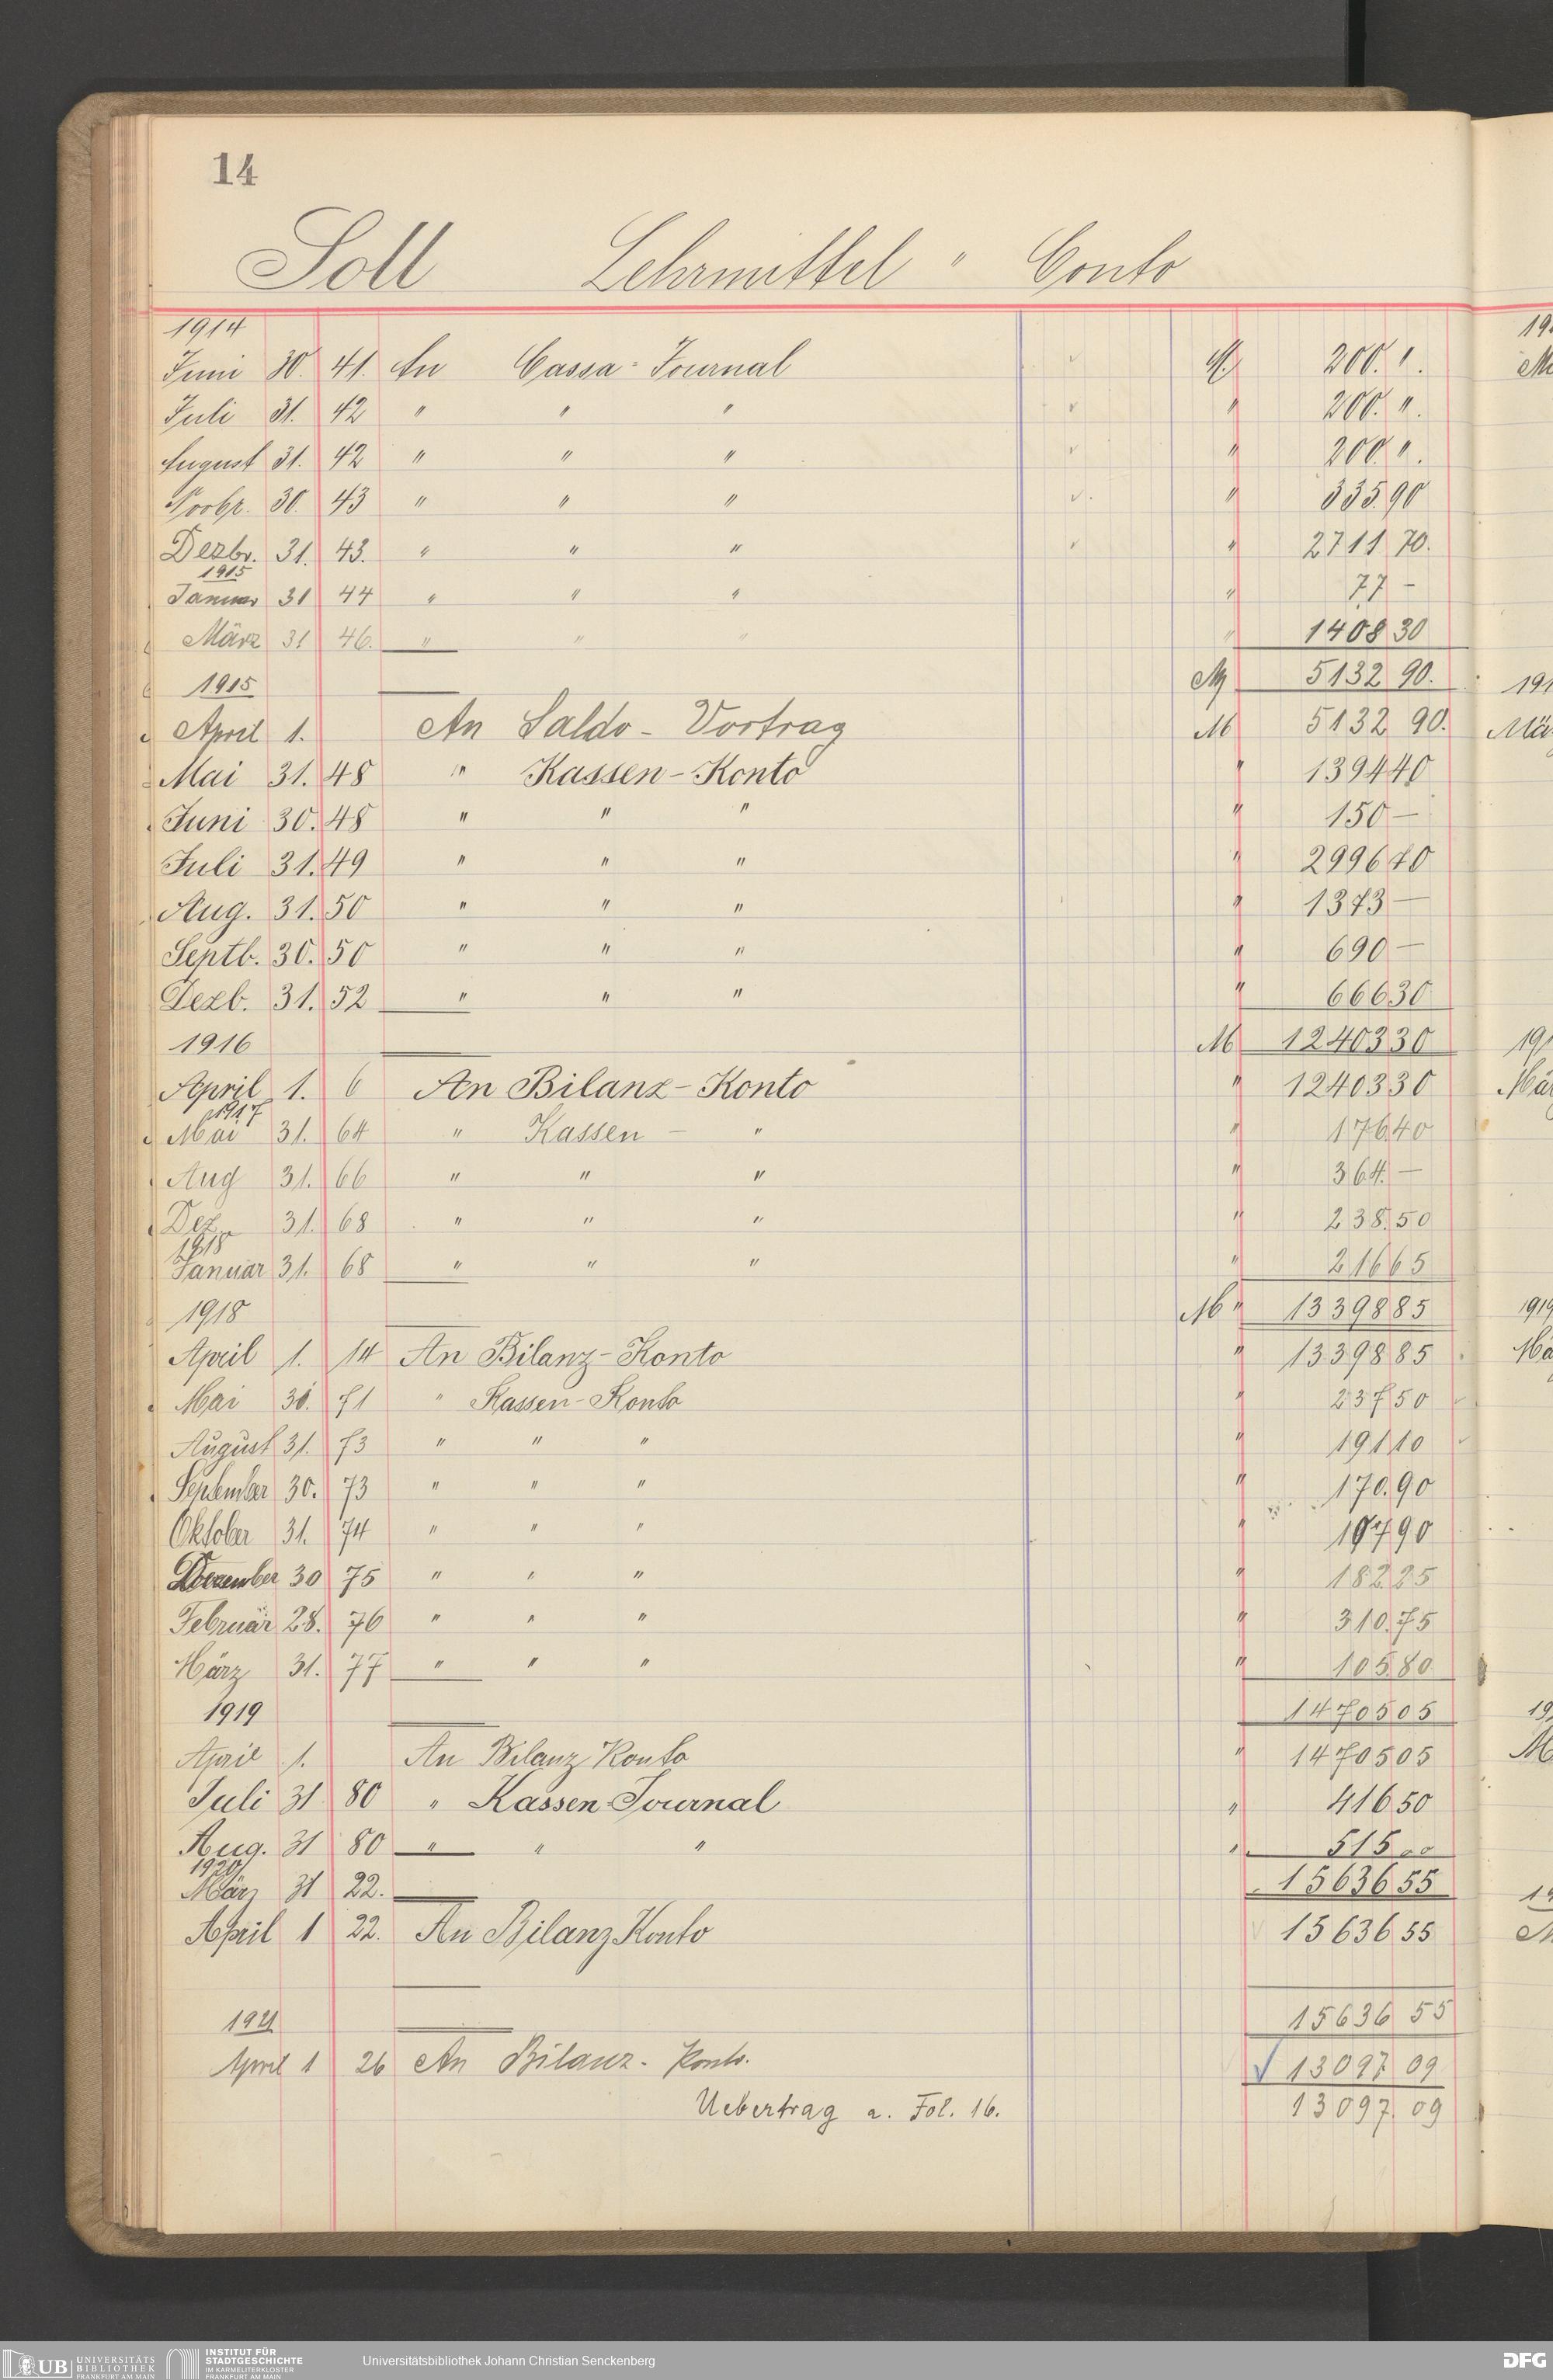 14
Soll Lehrmittel " Conto
1914
Juni 30. 41. An Cassa-Journal M. 200. ".
Juli 31. 42 " " " " 200. ".
August 31. 42 " " " " 200. ".
Novbr. 30. 43 " " " " 335 90
Dezbr. 31. 43. " " " " 2711 70.
1915
Januar 31 44 " " " " 77 -
März 31 46. " " " " 1408 30
M 5132 90.
1915
April 1. An Saldo - Vortrag M 5132 90.
Mai 31. 48 " Kassen-Konto " 1394 40
Juni 30. 48 " " " " 150 -
Juli 31. 49 " " " " 2996 70
Aug. 31. 50 " " " " 1373 -
Septb. 30. 50 " " " " 690 -
Dezb. 31. 52 " " " " 666 30
1916 M 12403 30
April 1. 6 An Bilanz-Konto " 12403 30
1917
Mai 31. 64 " Kassen - " " 176 40
Aug 31. 66 " " " " 364. -
Dez. 31. 68 " " " " 238. 50
1918
Januar 31. 68 " " " " 216 65
1918 M " 13398 85
April 1. 14 An Bilanz-Konto " 13398 85
Mai 31. 71 " Kassen-Konto " 237 50
August 31. 73 " " " " 191 10
September 30. 73 " " " " 170. 90
Oktober 31. 74 " " " " 107 90
Dezember 30 75 " " " " 182 25
Februar 28. 76 " " " " 310. 75
März 31. 77 " " " " 105. 80
1919 14705 05
April 1. An Bilanz Konto " 14705 05
Juli 31 80 " Kassen-Journal " 416 50
Aug. 31 80 " " " " 515 00
1920
März 31 22. 15636 55
April 1 22. An Bilanz Konto 15636 55
15636 55
1921
April 1 26 An Bilanz - Konto. 13097 09
Uebertrag a. Fol. 16. 13097. 09
UB UNIVERSITÄTS BIBLIOTHEK FRANKFURT AM MAIN
INSTITUT FÜR STADTGESCHICHTE IM KARMELITERKLOSTER FRANKFURT AM MAIN
Universitätsbibliothek Johann Christian Senckenberg
DFG